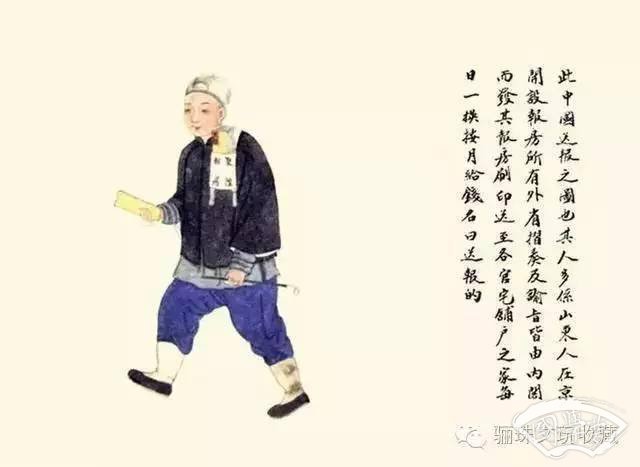 此中國送報之圖也其人多係山東人在京
開設報房所有外省摺奏及諭旨皆由内閣
而發其報房刷印送至各官宅舖户之家每
日一換按月給錢名曰送報的
骊珠文玩收藏